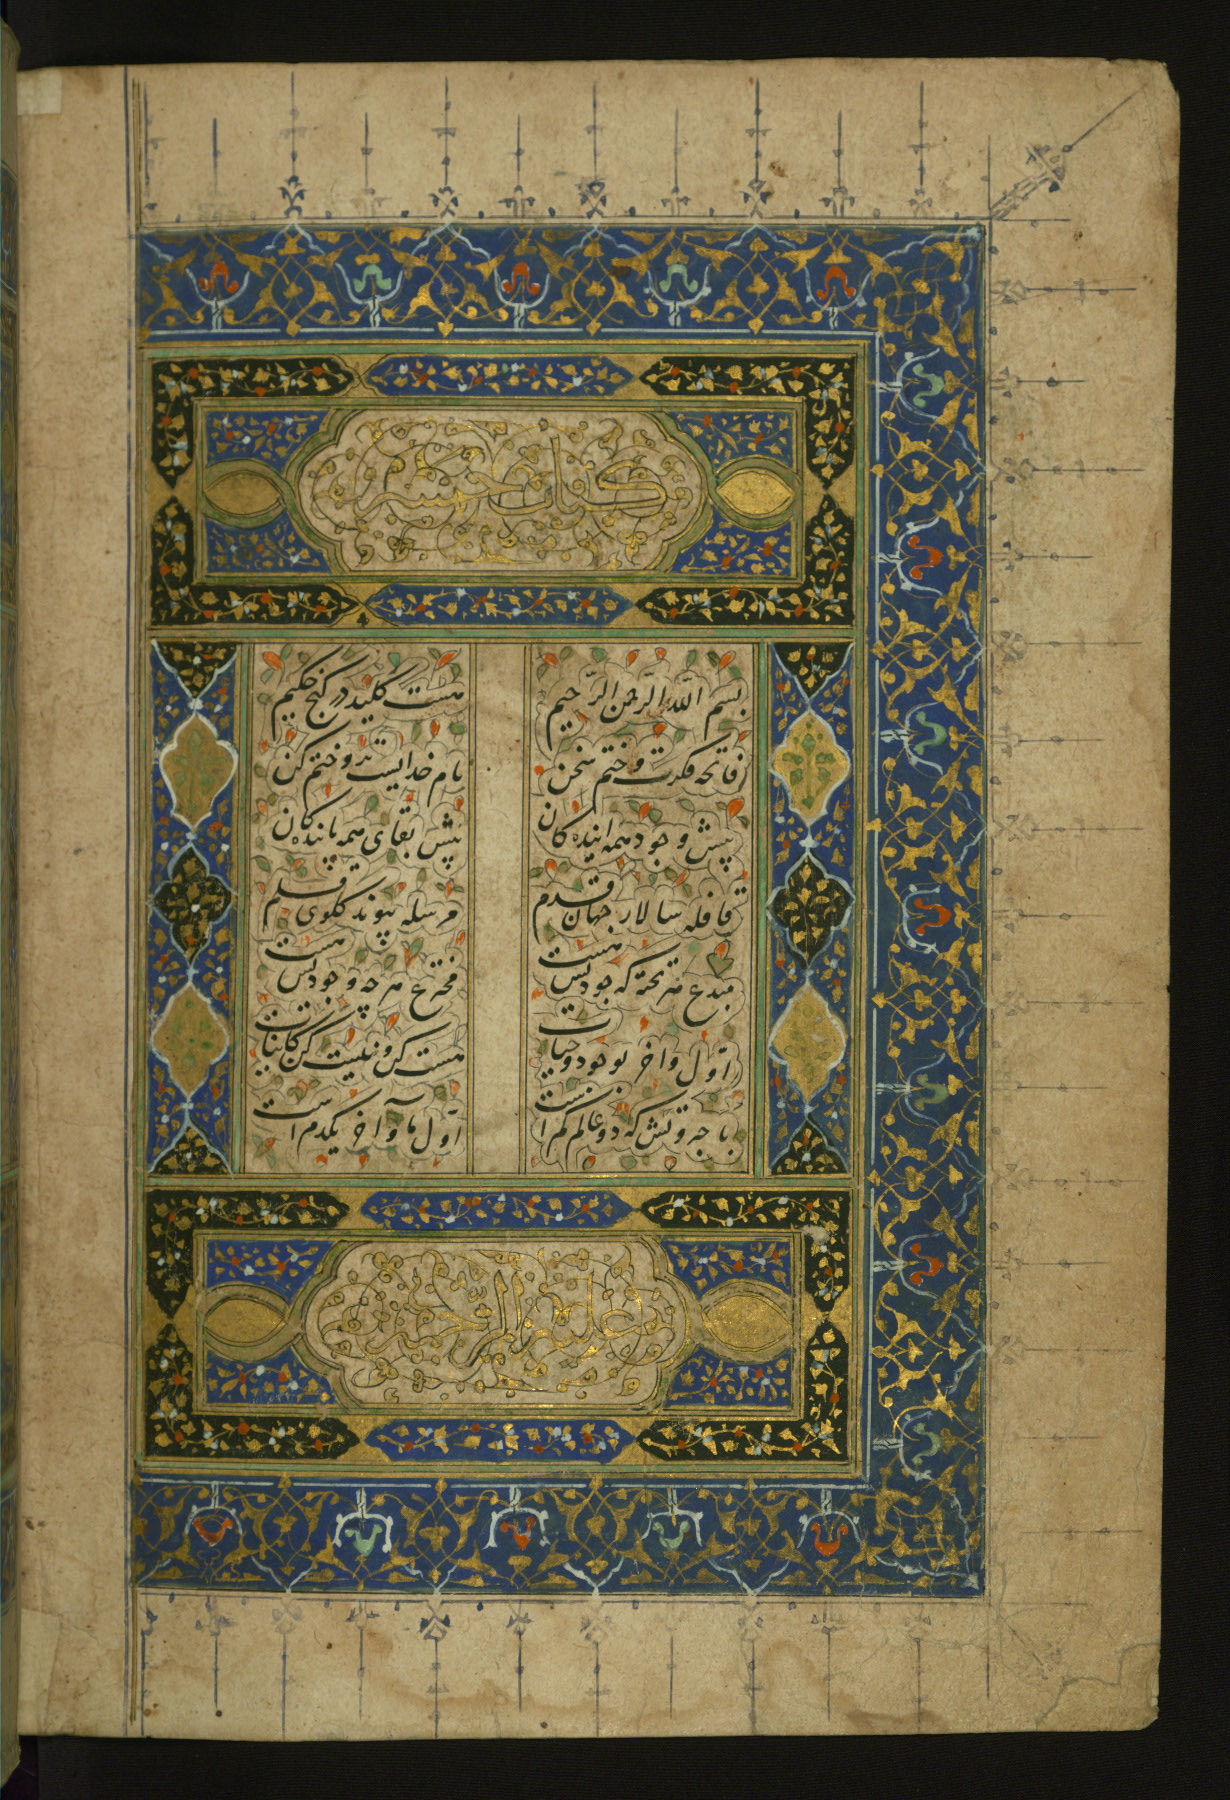 كتاب خمسه
بسم الله الرّحمن الرّحیم
هست کلید در گنج حکیم
فاتحه فکرت و ختم سخن
نام خدایست برو ختم کن
پیش وجود همه ایندکان
پیش بقای همه پایندکان
قافله سالار جهان قدم
مرسله پیوند کلوی قلم
مبدع هر که جودیس هست
مخترع هر چه وجودیس هست
اوّل و اخر بوجود و حیات
هست کن و نیست کن کاینات
با جبروتش که دو عالم کم است
اوّل ما و اخر یکدم است
علیه الرحمه